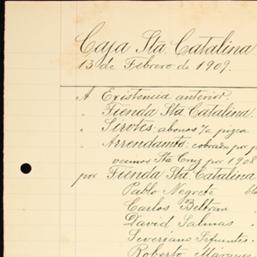 Caja Sta Catalina
13 de Febrero de 1909.
A Existencia anterior
" Tienda Sta Catalina
" Sirotes, abonos
" Arrendamto, cobrado por
Sta Cruz por 1908
por Tienda Sta Catalina
Pablo Negrete
Carlos Beltran
David Salinas
Severiano Sifuentes
Roberto Márquez